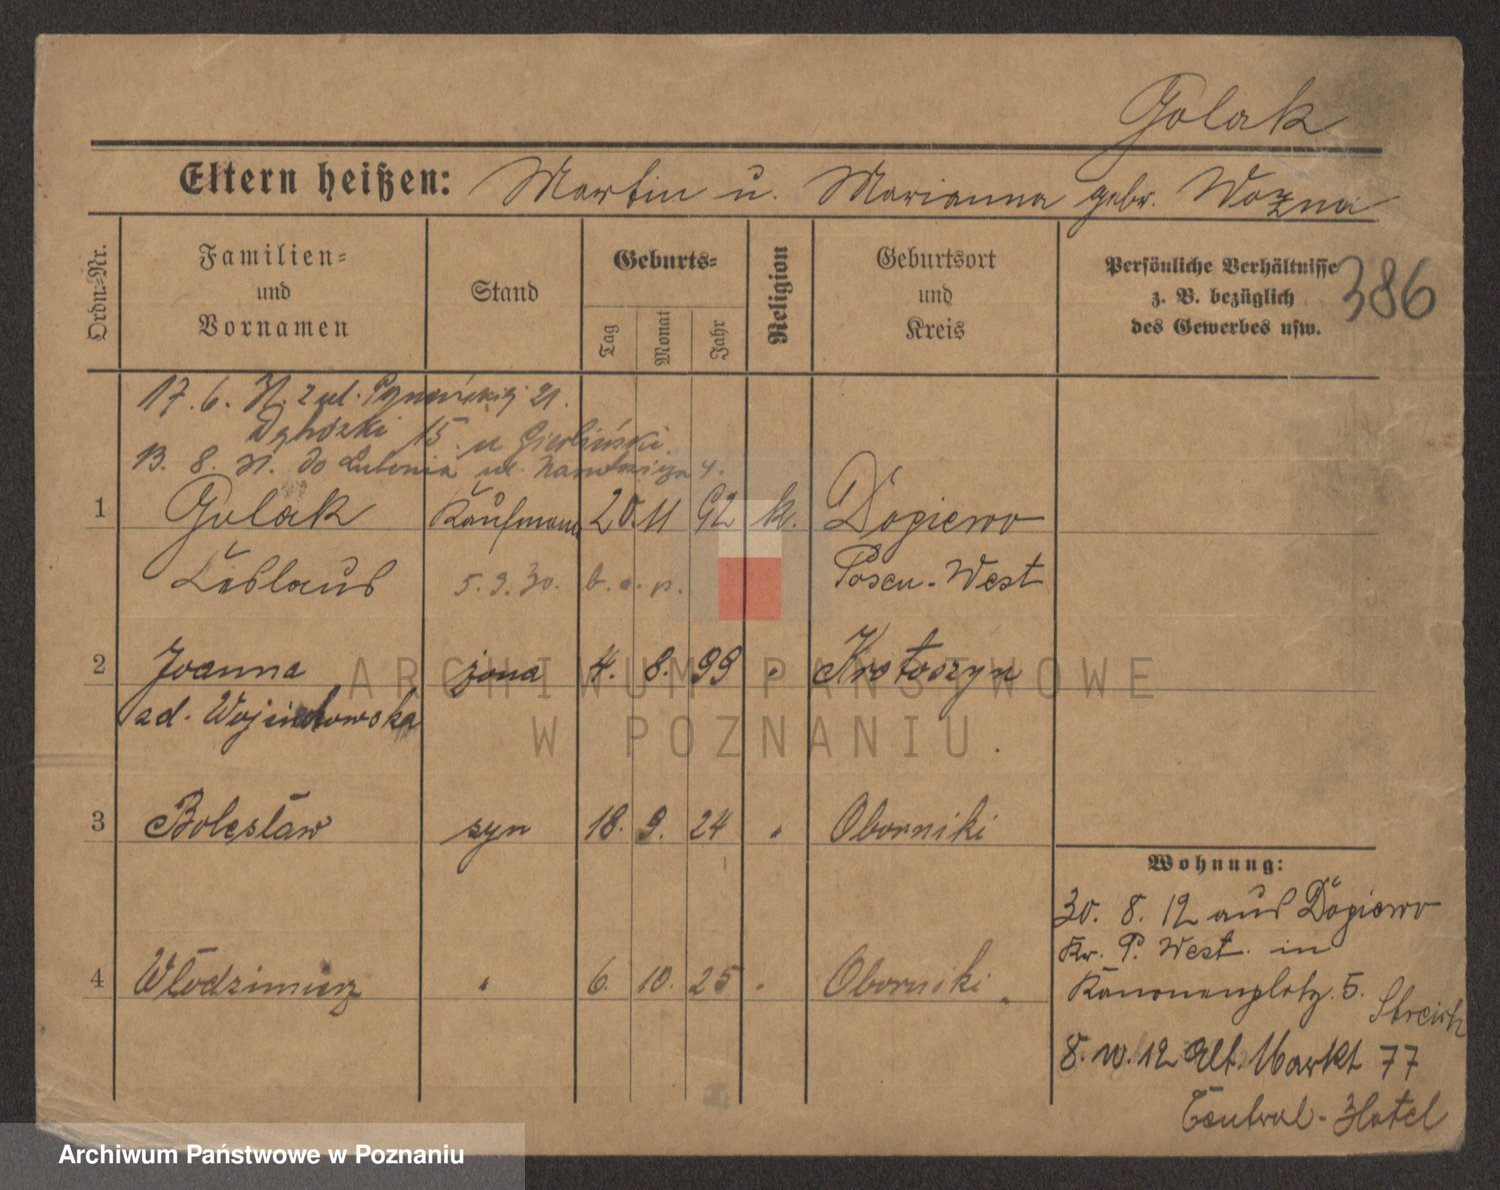 Golak
Eltern heißen: Martin u. Marianna gebr. Wozna
Ordn.-Nr.
Familien-
und
Vornamen
Stand
Geburts-
Tag
Monat
Jahr
Religion
Geburtsort
und
Kreis
Persönliche Verhältnisse
z. B. bezüglich
des Gewerbes usw.
386
17. 6. z ul. 21.
15 u
13. 8. do Lubonia ul.
1 Golak Kaufmann 20. 11 92 k. Dopiewo
Ceslaus 5. 9. 30. b. o. p. Posen-West
2 Joanna żona 4. 8. 99 " Krotoszyn
zd. Wojciechowska
3 Bolesław syn 18. 9. 24 " Oborniki
4 Włodzimierz " 6. 10. 25 " Oborniki
Wohnung:
30. 8. 12 aus Dopiewo
Kr. P. West in
Kanonenplatz. 5.
8. 10. 12 Alt. Markt 77
Central-Hotel
ARCHIWUM PAŃSTWOWE
W POZNANIU
Archiwum Państwowe w Poznaniu